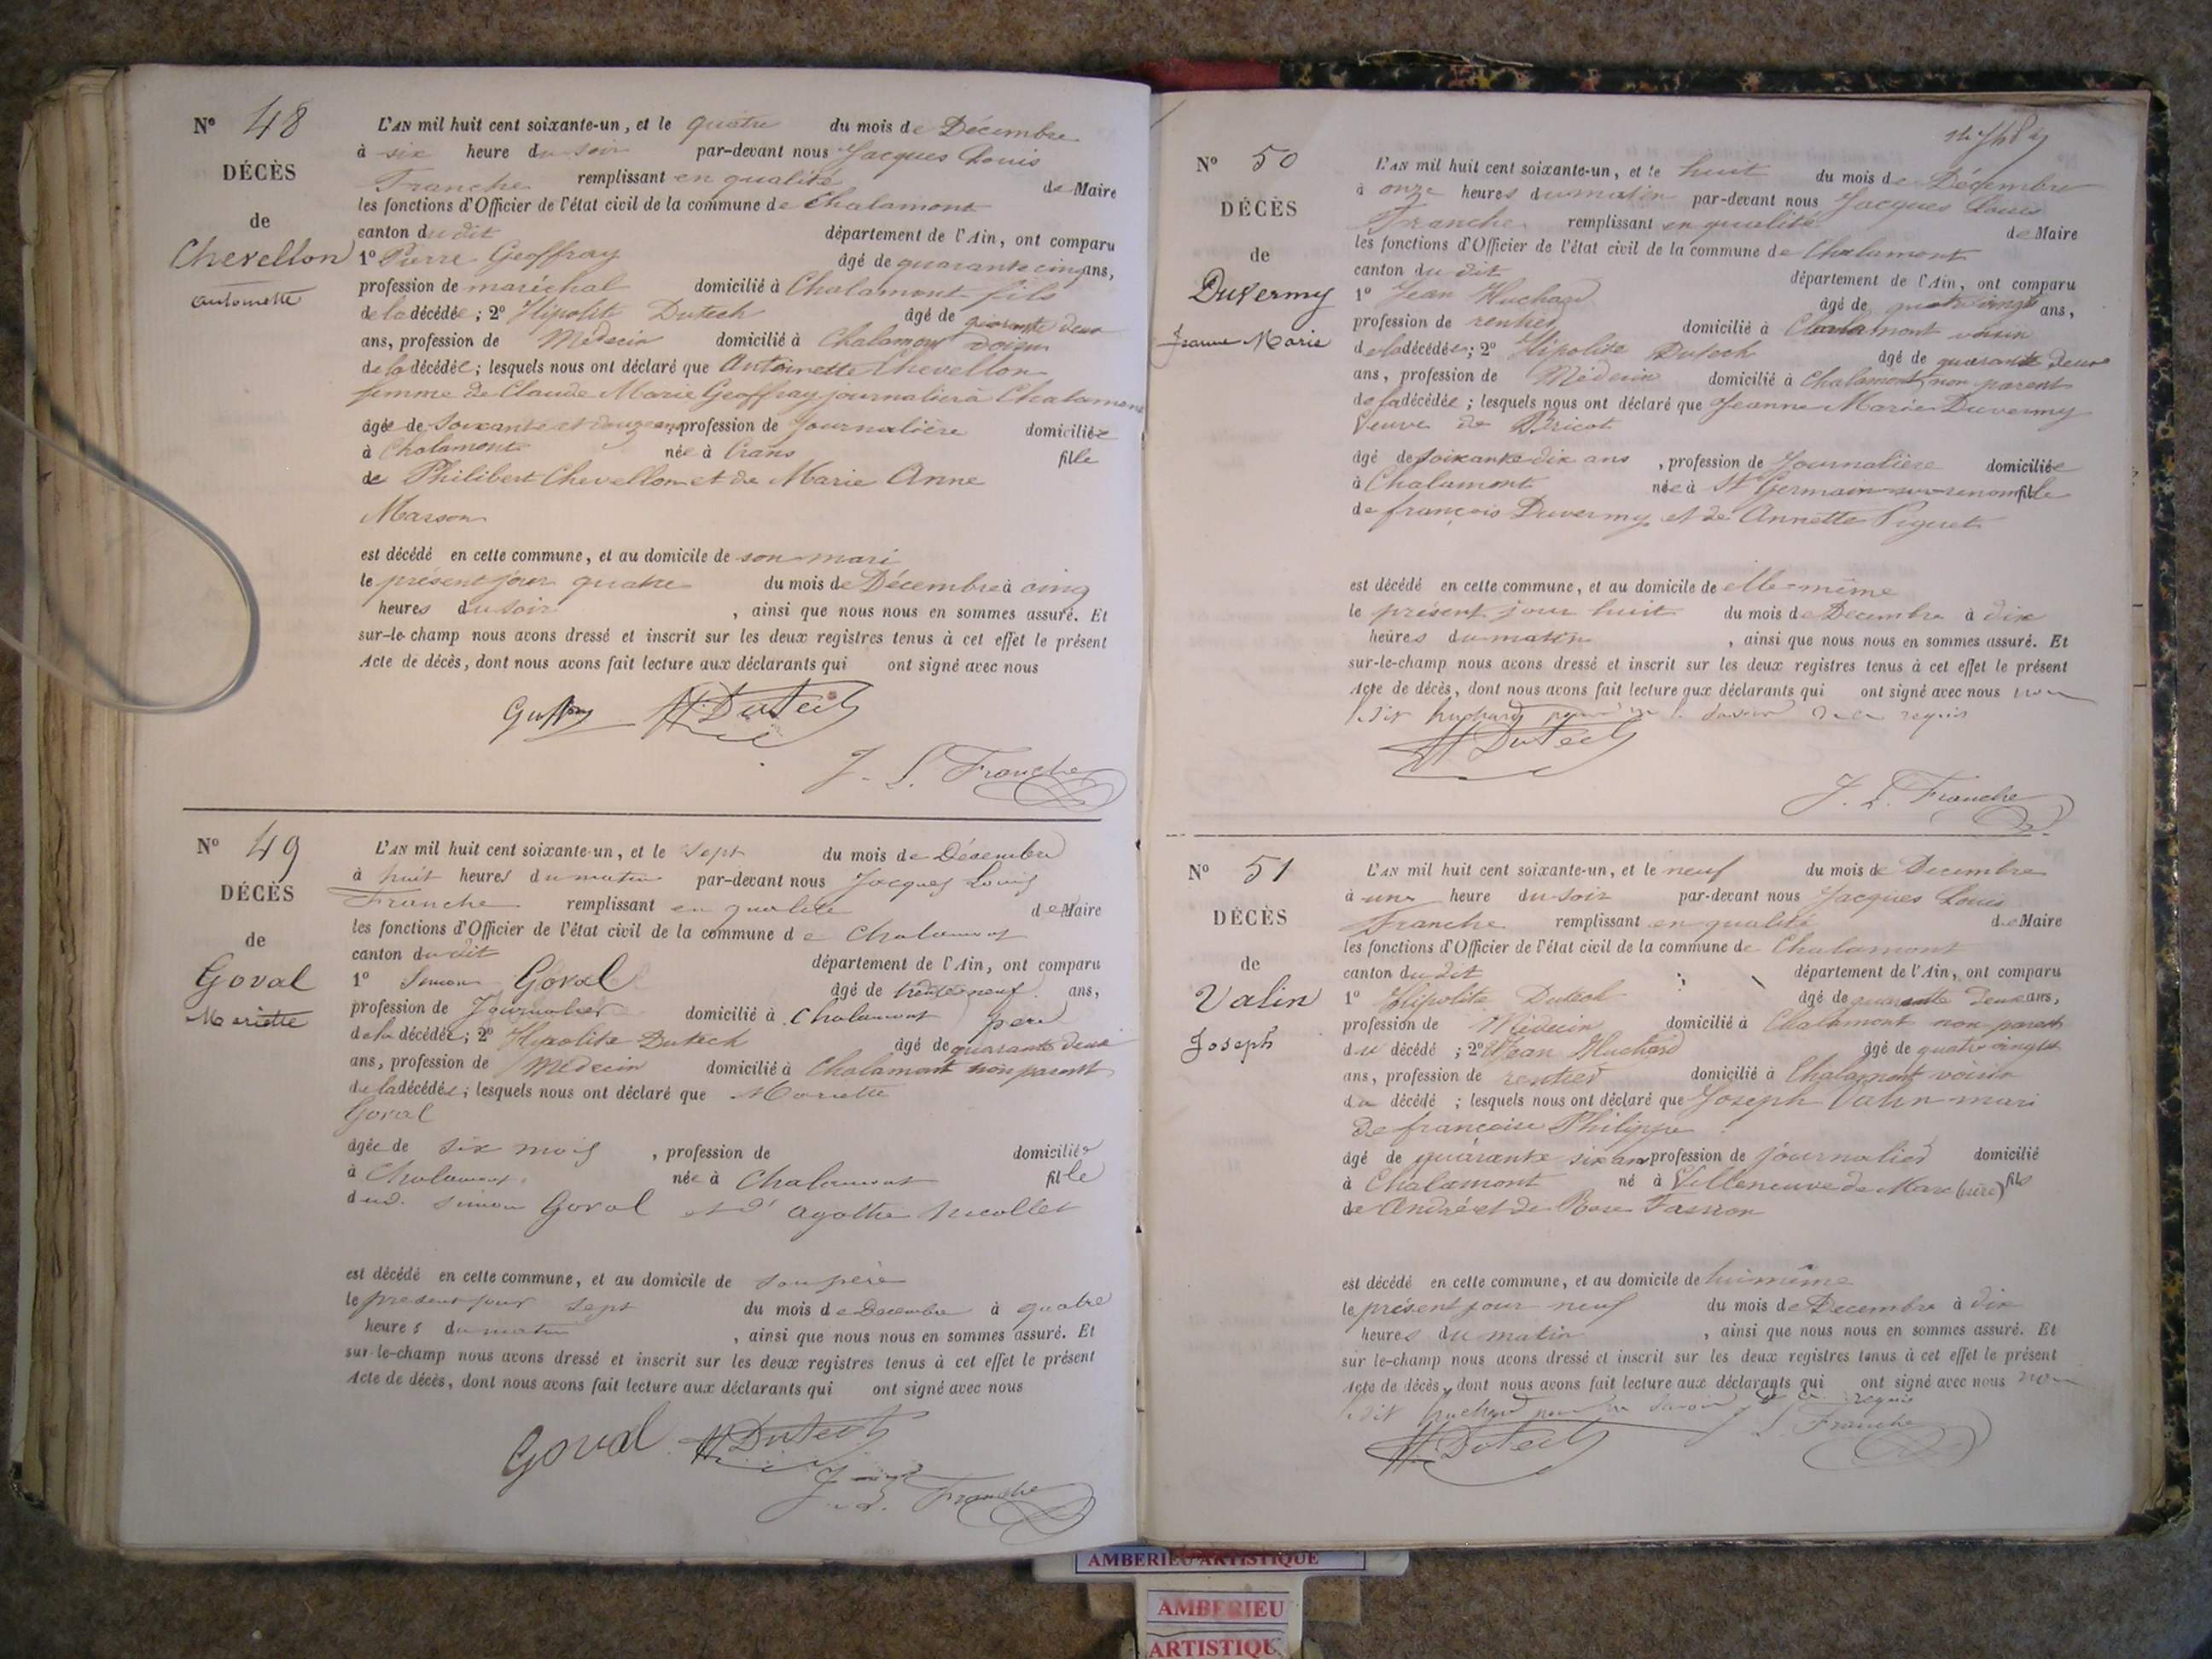 Nº 48
DÉCÈS
de
Chevellon
Antoinette
L'AN mil huit cent soixante-un, et le quatre du mois de Décembre
à six heure du soir par-devant nous Jacques Louis
Franche remplissant en qualité de Maire
les fonctions d'Officier de l'état civil de la commune de Chalamont
canton du dit département de l'Ain, ont comparu
1º Pierre Geoffray âgé de quarante cinq ans,
profession de maréchal domicilié à Chalamont fils
de la décédée ; 2º Hipolite Dutech âgé de quarante deux
ans, profession de Médecin domicilié à Chalamont voisin
de la décédée ; lesquels nous ont déclaré que Antoinette Chevellon
femme de Claude Marie Geoffray journalier à Chalamont
âgée de Soixante et douze ans, profession de Journalière domiciliée
à Chalamont née à Crans fille
de Philibert Chevellon et de Marie Anne
Masson
est décédé en cette commune, et au domicile de son mari
le présent jour quatre du mois de Décembre à cinq
heures du soir , ainsi que nous nous en sommes assuré. Et
sur-le-champ nous avons dressé et inscrit sur les deux registres tenus à cet effet le présent
Acte de décès, dont nous avons fait lecture aux déclarants qui ont signé avec nous
H Dutech
J. L. Franche
Nº 49
DÉCÈS
de
Goval
Mariette
L'AN mil huit cent soixante-un, et le Sept du mois de Décembre
à huit heures du matin par-devant nous Jacques Louis
Franche remplissant en qualité de Maire
les fonctions d'Officier de l'état civil de la commune de Chalamont
canton du dit département de l'Ain, ont comparu
1º Simon Goval âgé de trente neuf ans,
profession de Journalier domicilié à Chalamont père
de la décédée ; 2º Hipolite Dutech âgé de quarante deux
ans, profession de Médecin domicilié à Chalamont non parent
de la décédée ; lesquels nous ont déclaré que Mariette
Goval
âgée de six mois , profession de domiciliée
à Chalamont née à Chalamont fille
dud. Simon Goval et d'Agathe Nicollet
est décédé en cette commune, et au domicile de son père
le présent jour sept du mois de Décembre à quatre
heures du matin , ainsi que nous nous en sommes assuré. Et
sur-le-champ nous avons dressé et inscrit sur les deux registres tenus à cet effet le présent
Acte de décès, dont nous avons fait lecture aux déclarants qui ont signé avec nous
Goval H Dutech
J. L. Franche
Nº 50
DÉCÈS
de
Duvermy
Jeanne Marie
L'AN mil huit cent soixante-un, et le huit du mois de Décembre
à onze heures du matin par-devant nous Jacques Louis
Franche remplissant en qualité de Maire
les fonctions d'Officier de l'état civil de la commune de Chalamont
canton du dit département de l'Ain, ont comparu
1º Jean Huchard âgé de quatre vingts ans,
profession de rentier domicilié à Chalamont voisin
de la décédée ; 2º Hipolite Dutech âgé de quarante deux
ans, profession de Médecin domicilié à Chalamont non parent
de la décédée ; lesquels nous ont déclaré que Jeanne Marie Duvermy
Veuve de Bricot
âgé de soixante dix ans , profession de Journalière domiciliée
à Chalamont née à St Germain sur renom fille
de françois Duvermy et de Annette Piquet
est décédé en cette commune, et au domicile de elle-même
le présent jour huit du mois de Décembre à dix
heures du matin , ainsi que nous nous en sommes assuré. Et
sur-le-champ nous avons dressé et inscrit sur les deux registres tenus à cet effet le présent
Acte de décès, dont nous avons fait lecture aux déclarants qui ont signé avec nous non
le dit huchard pour ne le savoir de ce requis
H Dutech
J. L. Franche
Nº 51
DÉCÈS
de
Valin
Joseph
L'AN mil huit cent soixante-un, et le neuf du mois de Décembre
à une heure du soir par-devant nous Jacques Louis
Franche remplissant en qualité de Maire
les fonctions d'Officier de l'état civil de la commune de Chalamont
canton du dit département de l'Ain, ont comparu
1º Hipolite Dutech âgé de quarante deux ans,
profession de Médecin domicilié à Chalamont non parent
du décédé ; 2º Jean Huchard âgé de quatre vingts
ans, profession de rentier domicilié à Chalamont voisin
du décédé ; lesquels nous ont déclaré que Joseph Valin mari
de françoise Philippe
âgé de quarante six ans profession de journalier domicilié
à Chalamont né à Villeneuve de Marc (isère) fils
de André et de Rose
est décédé en cette commune, et au domicile de lui même
le présent jour neuf du mois de Décembre à dix
heures du matin , ainsi que nous nous en sommes assuré. Et
sur le-champ nous avons dressé et inscrit sur les deux registres tenus à cet effet le présent
Acte de décès, dont nous avons fait lecture aux déclarants qui ont signé avec nous non
le dit huchard pour ne savoir de ce requis
H Dutech J L Franche
AMBERIEU ARTISTIQUE
AMBERIEU
ARTISTIQUE